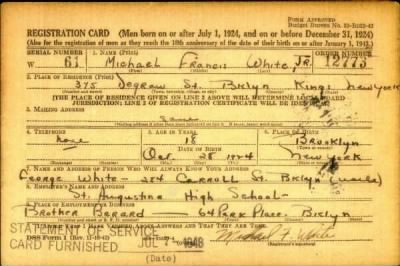 FORM APPROVED
REGISTRATION CARD (Men born on or after July 1, 1924, and on or before December 31, 1924)
(Also for the registration of men as they reach the 18th anniversary of the date of their birth on or after January 1, 1943.)
SERIAL NUMBER 1. NAME (Print) ORDER NUMBER
W 61 Michael Francis White, JR.
(First) (Middle) (Last)
2. PLACE OF RESIDENCE (Print)
375 Degraw St. Bklyn Kings New York
[THE PLACE OF RESIDENCE GIVEN ON LINE 2 ABOVE WILL DETERMINE LOCAL BOARD
JURISDICTION; LINE 2 OF REGISTRATION CERTIFICATE WILL BE IDENTICAL]
3. MAILING ADDRESS
Same
4. TELEPHONE 5. AGE IN YEARS 6. PLACE OF BIRTH
none 18 Brooklyn
DATE OF BIRTH
Dec. 28 1924 New York
7. NAME AND ADDRESS OF PERSON WHO WILL ALWAYS KNOW YOUR ADDRESS
George White - 284 Carroll St. Bklyn (uncle)
8. EMPLOYER'S NAME AND ADDRESS
St. Augustine High School -
9. PLACE OF EMPLOYMENT OR BUSINESS
Brother Berard - 64 Park Place - Bklyn
I AFFIRM THAT I HAVE VERIFIED ABOVE ANSWERS AND THAT THEY ARE TRUE.
STATEMENT OF SERVICE
CARD FURNISHED JUL 1948
DSS Form 1 Michael F. White
(Date)